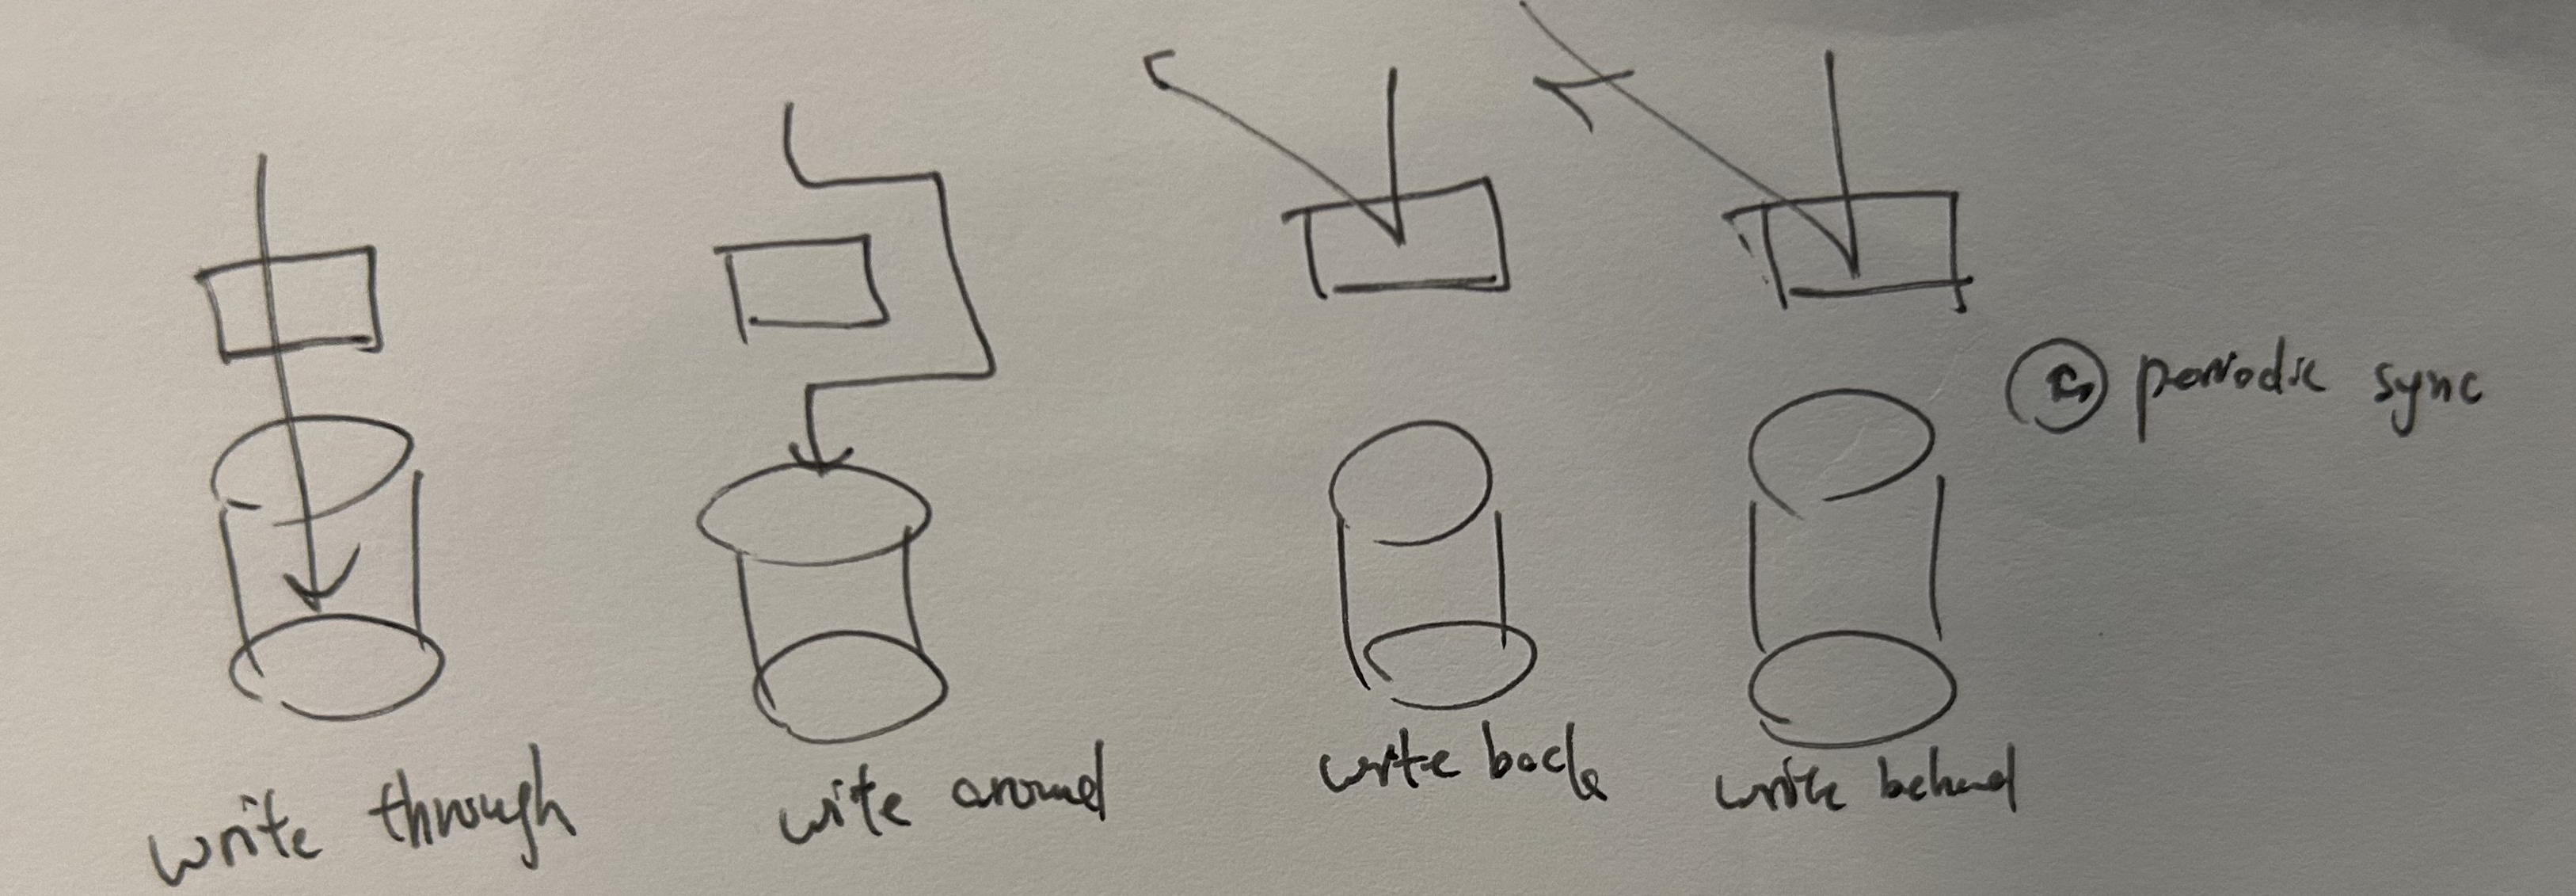 periodic sync
write through
write around
write back
write behind